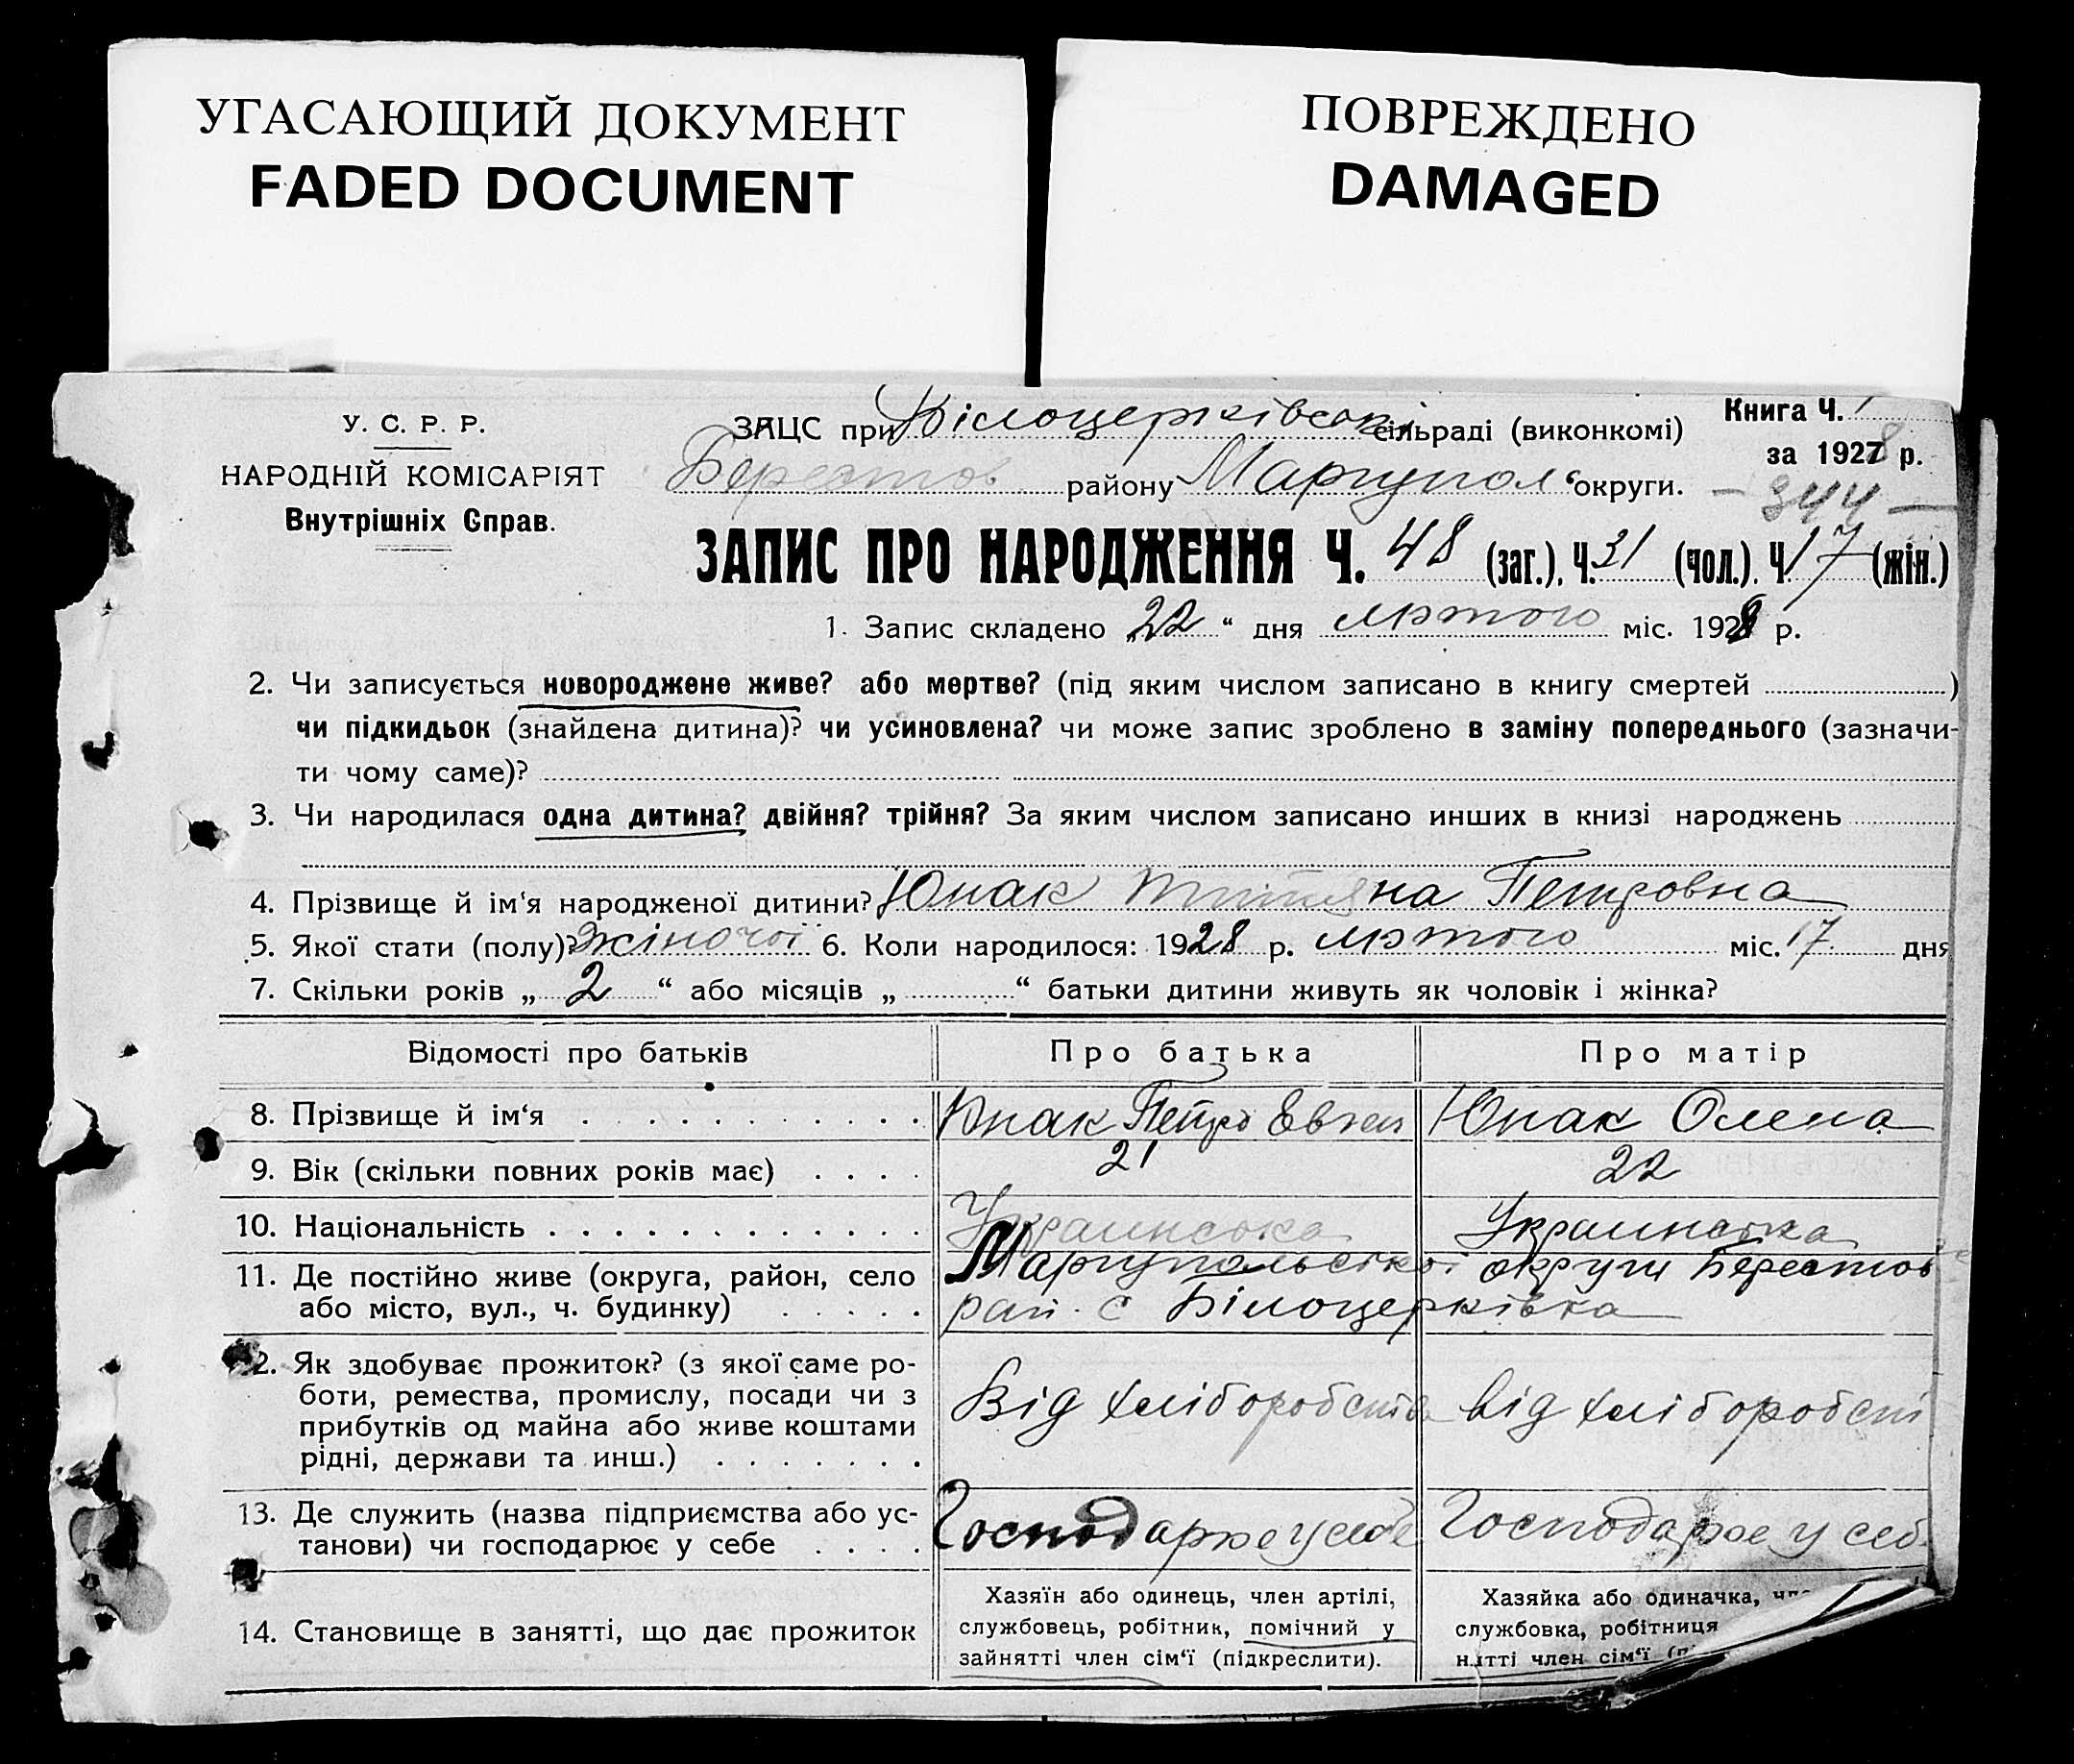 УГАСАЮЩИЙ ДОКУМЕНТ
FADED DOCUMENT
ПОВРЕЖДЕНО
DAMAGED
У. С. Р. Р.
НАРОДНІЙ КОМІСАРІЯТ
Внутрішніх Справ.
ЗАЦС при Білоцерківські сільраді (виконкомі)
Берестов району Маріупол округи.
Книга Ч. 1
за 1928 р.
— 344 —
ЗАПИС ПРО НАРОДЖЕННЯ Ч. 48 (заг.), Ч. 31 (чол.). Ч. 17 (жін.)
1. Запис складено „22“ дня лютого міс. 1928 р.
2. Чи записується новороджене живе? або мертве? (під яким числом записано в книгу смертей )
чи підкидьок (знайдена дитина)? чи усиновлена? чи може запис зроблено в заміну попереднього (зазначи-
ти чому саме)?
3. Чи народилася одна дитина? двійня? трійня? За яким числом записано инших в книзі народжень
4. Прізвище й ім‘я народженої дитини? Юнак Титяна Петровна
5. Якої стати (полу)? жіночої 6. Коли народилося: 1928 р. лютого міс. 17 дня
7. Скільки років „ 2 “ або місяців „ “ батьки дитини живуть як чоловік і жінка?
Відомості про батьків Про батька Про матір
8. Прізвище й ім‘я Юнак Петро Евген Юнак Олена
9. Вік (скільки повних років має) 21 22
10. Національність Украинська Украинська
11. Де постійно живе (округа, район, село Маріупольської округи Берестов
або місто, вул., ч. будинку) рай. с Білоцерківка
12. Як здобуває прожиток? (з якої саме ро-
боти, ремества, промислу, посади чи з
прибутків од майна або живе коштами
рідні, держави та инш.)
Від хліборобств від хліборобст
13. Де служить (назва підприємства або ус-
танови) чи господарює у себе
Господарює у себе Господарює у себ
14. Становище в занятті, що дає прожиток
Хазяїн або одинець, член артілі,
службовець, робітник, помічний у
зайнятті член сім‘ї (підкреслити).
Хазяйка або одиначка,
службовка, робітниця
нятті член сім‘ї